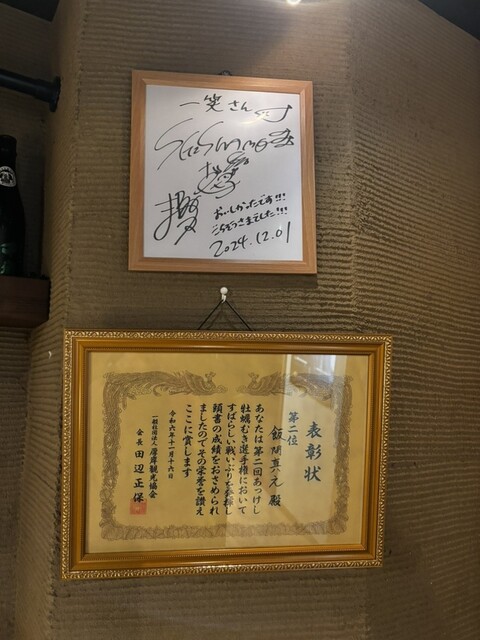 一笑さんへ
おいしかったです!!!
ごちそうさまでした!!!
2024.12.01
表彰状
第二位
飯間真元 殿
あなたは第二回あっけし
牡蠣むき選手権において
すばらしい戦いぶりを発揮し
頭書の成績をおさめられ
ましたのでその栄誉を讃え
ここに賞します
令和六年十一月十六日
一般社団法人厚岸観光協会
会長 田辺正保